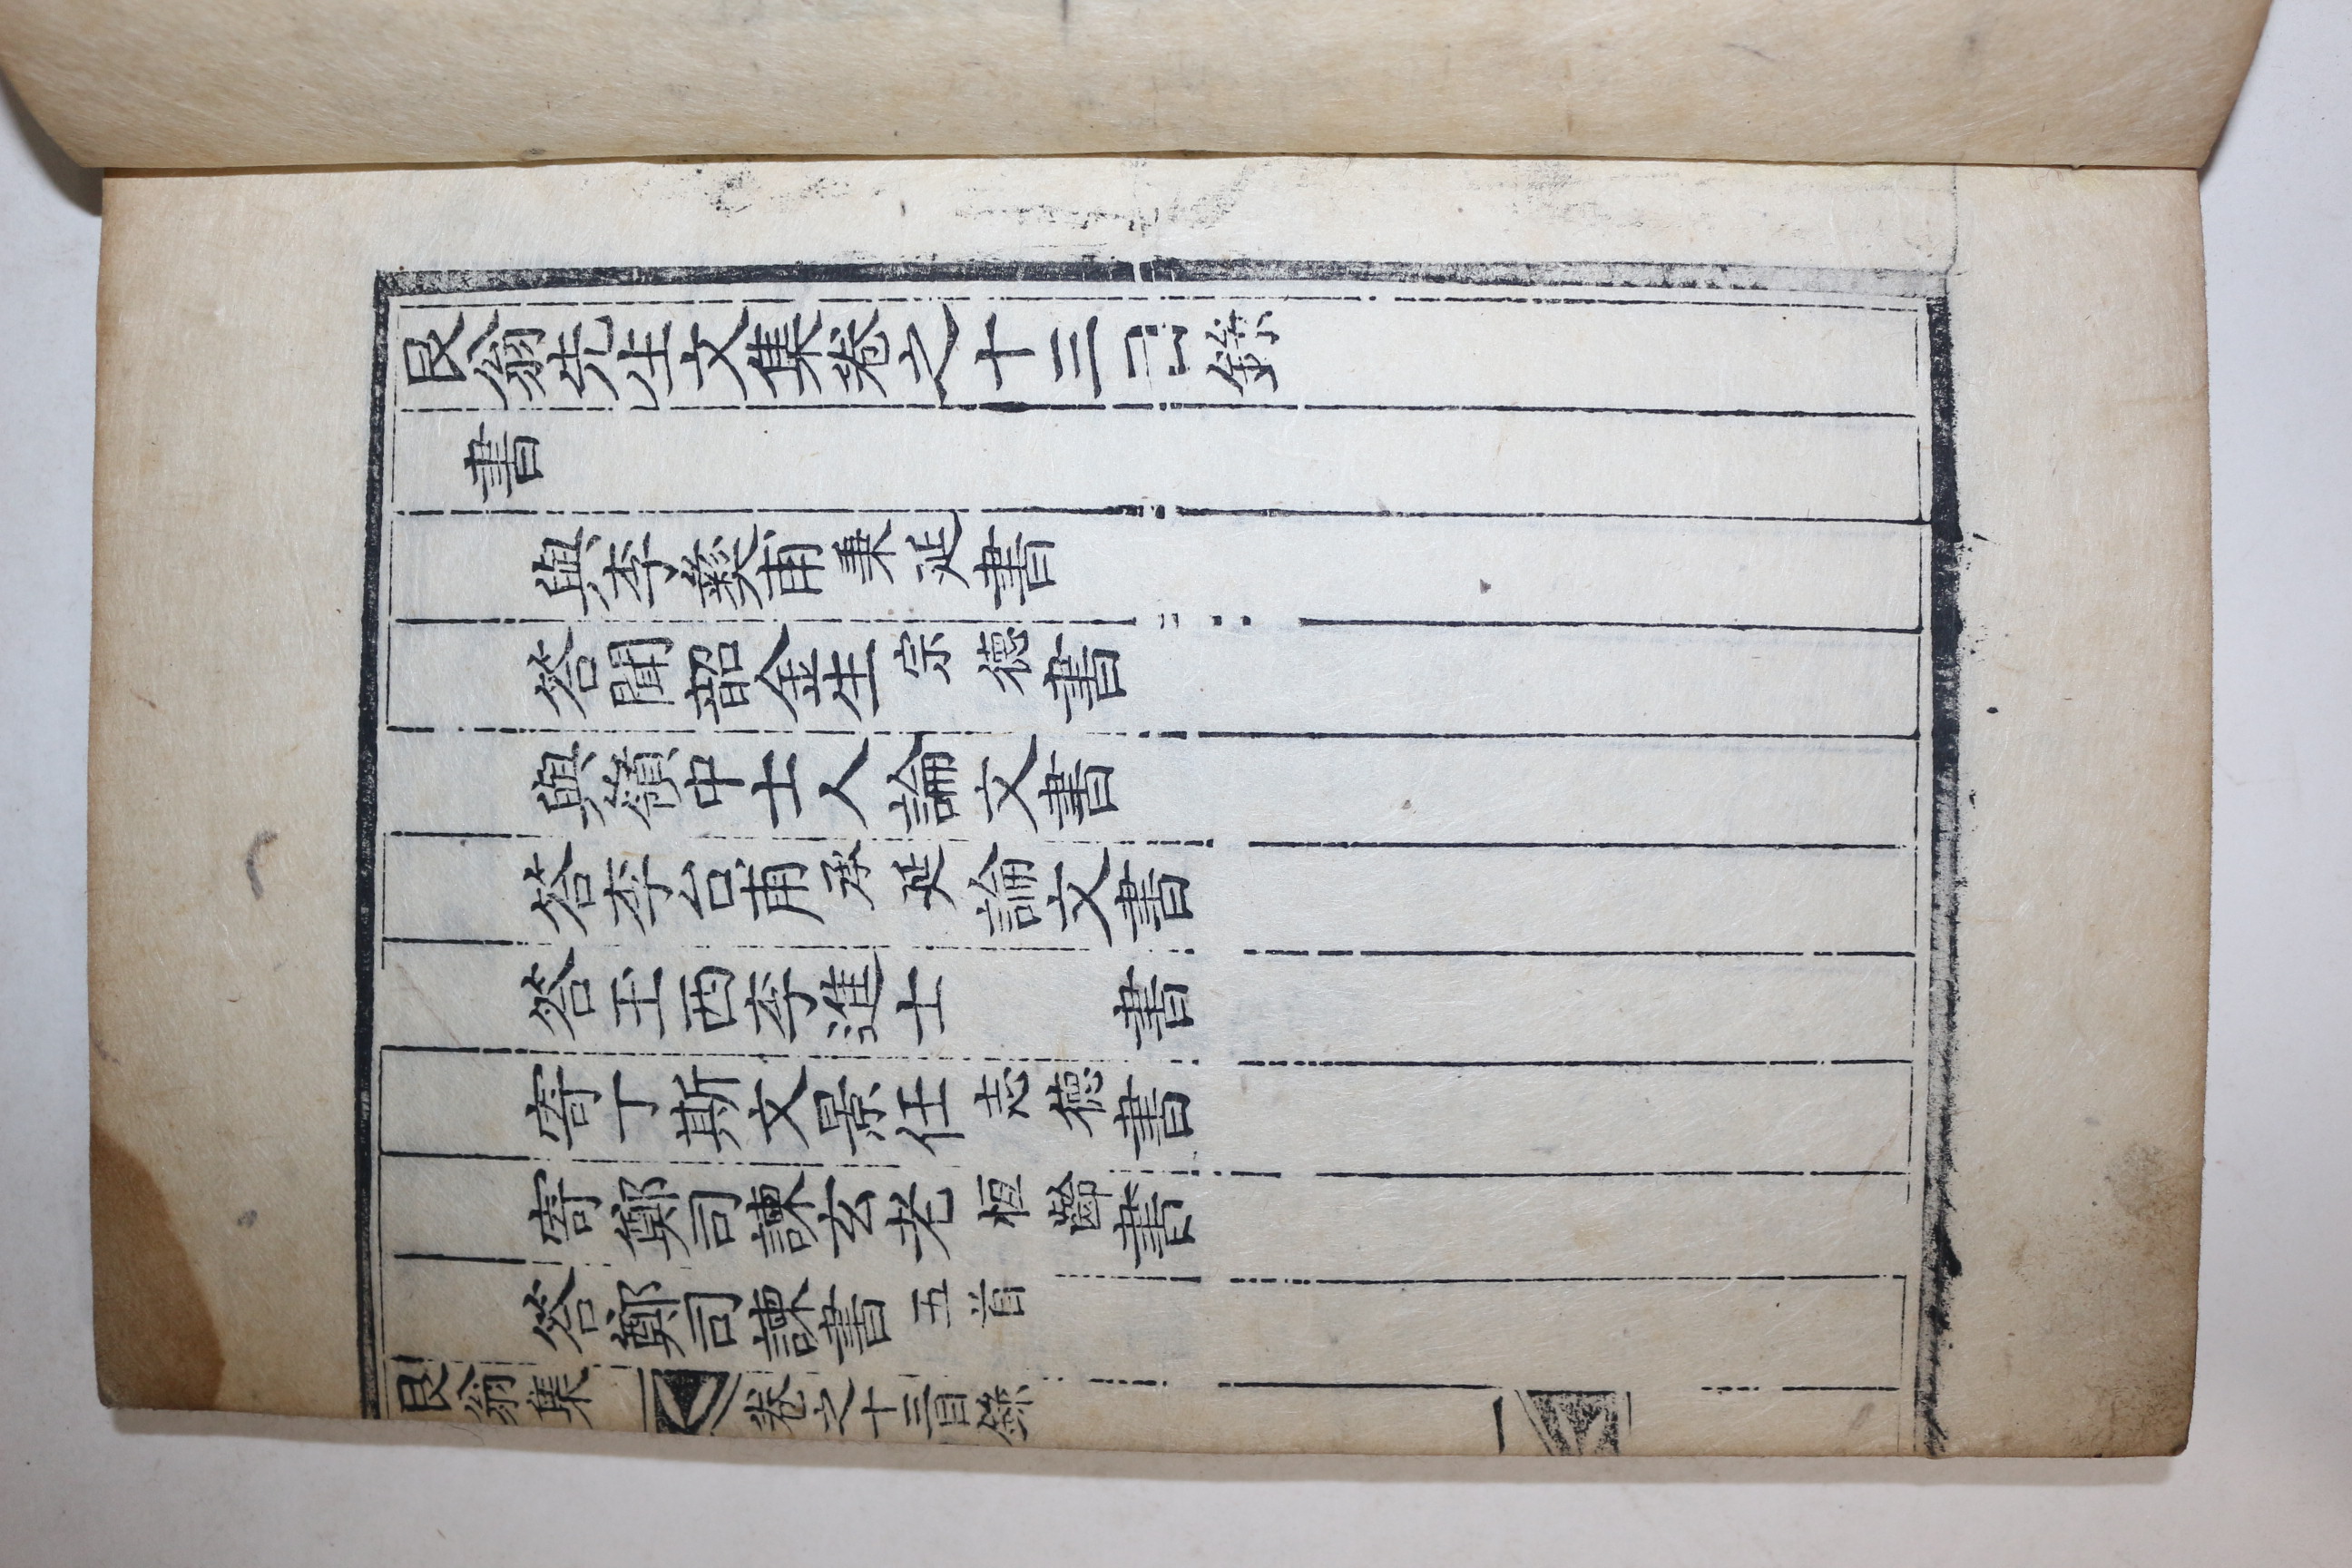 艮翁先生文集卷之十三目錄
書
與李彛甫秉延書
答聞韶金生宗德書
與嶺中士人論文書
答李台甫承延論文書
答玉西李進士書
寄丁斯文景任志德書
寄鄭司諫玄老恒齡書
答鄭司諫書五首
艮翁集 卷之十三目錄